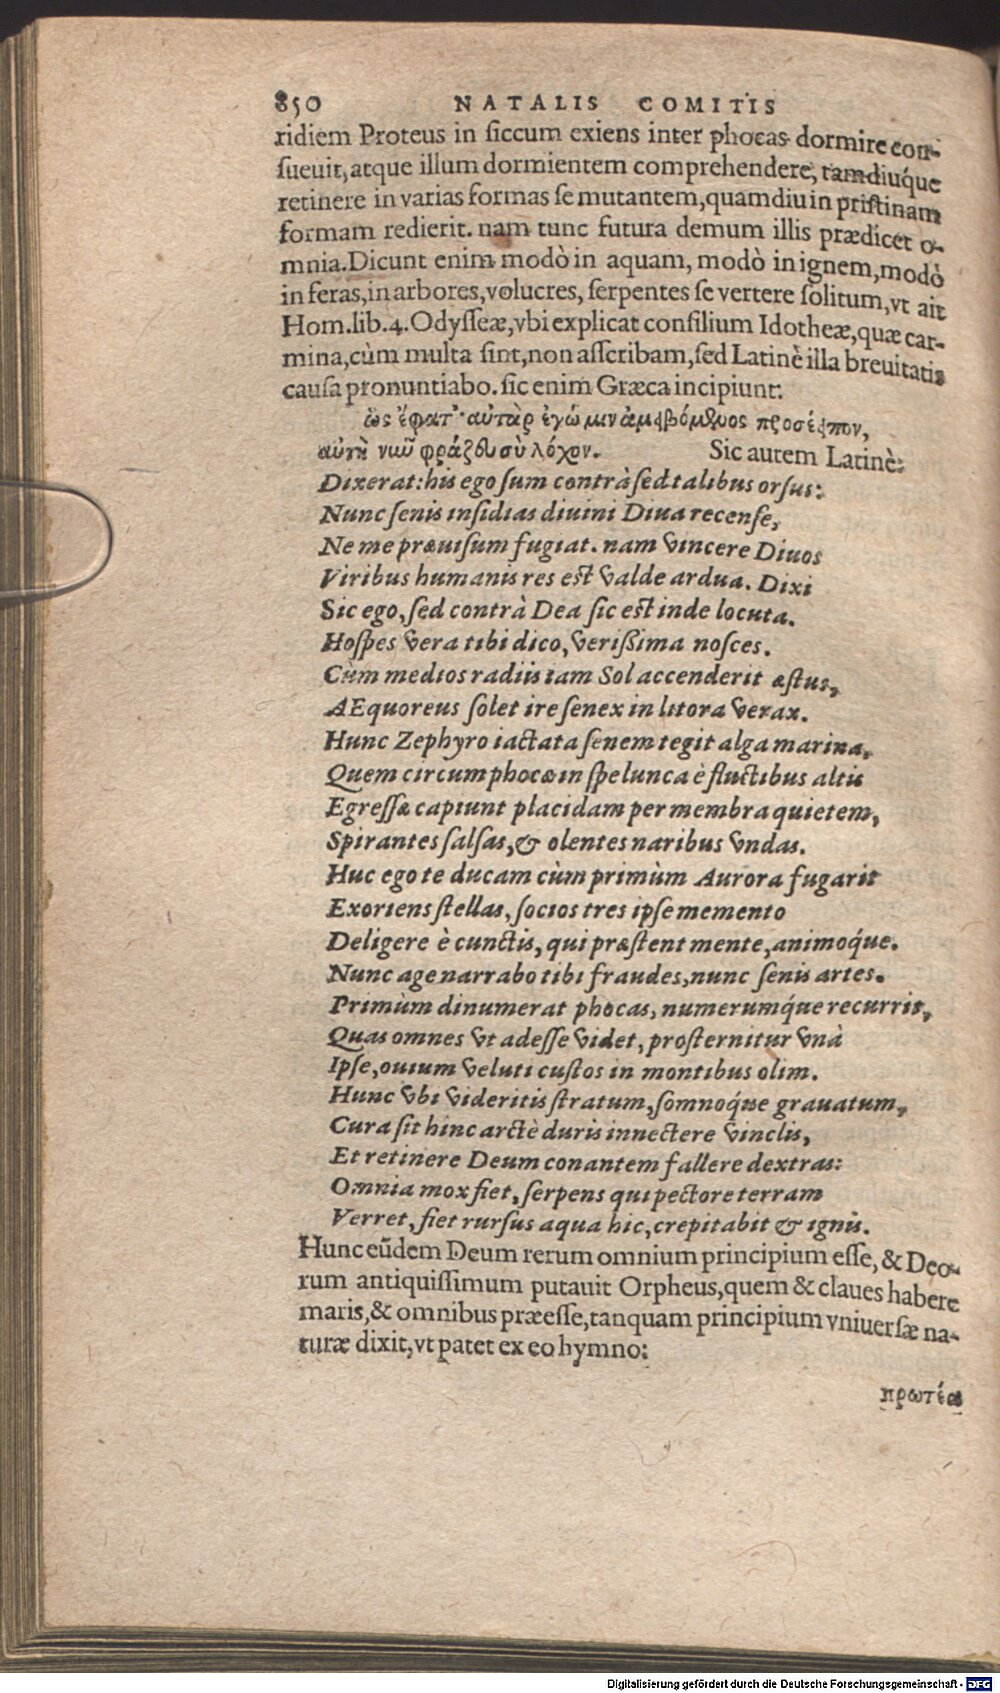 850 NATALIS COMITIS
ridiem Proteus in siccum exiens inter phocas dormire con-
sueuit, atque illum dormientem comprehendere, tamdiúque
retinere in varias formas se mutantem, quamdiu in pristinam
formam redierit. nam tunc futura demum illis prædicet o-
mnia. Dicunt enim modò in aquam, modò in ignem, modò
in feras, in arbores, volucres, serpentes se vertere solitum, vt ait
Hom. lib. 4. Odysseæ, vbi explicat consilium Idotheæ, quæ car-
mina, cùm multa sint, non asscribam, sed Latinè illa breuitatis
causa pronuntiabo. sic enim Græca incipiunt:
ὣς ἔφατ᾽· αὐτὰρ ἐγώ μιν ἀμειβόμενος προσέειπον,
αὐτὴ νῦν φράζευ σὺ λόχον. Sic autem Latinè:
Dixerat: his ego sum contrà sed talibus orsus:
Nunc senis insidias diuini Diua recense,
Ne me præuisum fugiat. nam vincere Diuos
Viribus humanis res est valde ardua. Dixi
Sic ego, sed contrà Dea sic est inde locuta.
Hospes vera tibi dico, verißima nosces.
Cùm medios radiis iam Sol accenderit æstus,
AEquoreus solet ire senex in litora verax.
Hunc Zephyro iactata senem tegit alga marina,
Quem circum phocæ in spelunca è fluctibus altis
Egressæ capiunt placidam per membra quietem,
Spirantes salsas, & olentes naribus vndas.
Huc ego te ducam cùm primùm Aurora fugarit
Exoriens stellas, socios tres ipse memento
Deligere è cunctis, qui præstent mente, animoq́ue.
Nunc age narrabo tibi fraudes, nunc senis artes.
Primùm dinumerat phocas, numerumq́ue recurrit,
Quas omnes vt adesse videt, prosternitur vnà
Ipse, ouium veluti custos in montibus olim.
Hunc vbi videritis stratum, somnoq́ue grauatum,
Cura sit hinc arctè duris innectere vinclis,
Et retinere Deum conantem fallere dextras:
Omnia mox fiet, serpens qui pectore terram
Verret, fiet rursus aqua hic, crepitabit & ignis.
Hunc eũdem Deum rerum omnium principium esse, & Deo-
rum antiquissimum putauit Orpheus, quem & claues habere
maris, & omnibus præesse, tanquam principium vniuersæ na-
turæ dixit, vt patet ex eo hymno:
πρωτέα
Digitalisierung gefördert durch die Deutsche Forschungsgemeinschaft - DFG